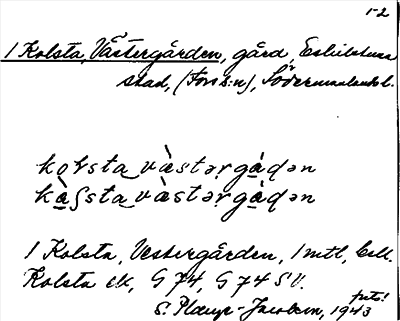 1-2
1 Kolsta, Västergården, gård, Eskilstuna
stad, (Fors s:n), Södermanlands l.
kolsta västərgàḍən
kàʃsta västərgàḍən
1 Kolsta, Vestergården, 1 mtl, Esk.
Kolsta ek, G 74, G 74 SV.
S. Plaup-Jacobsen, 1943